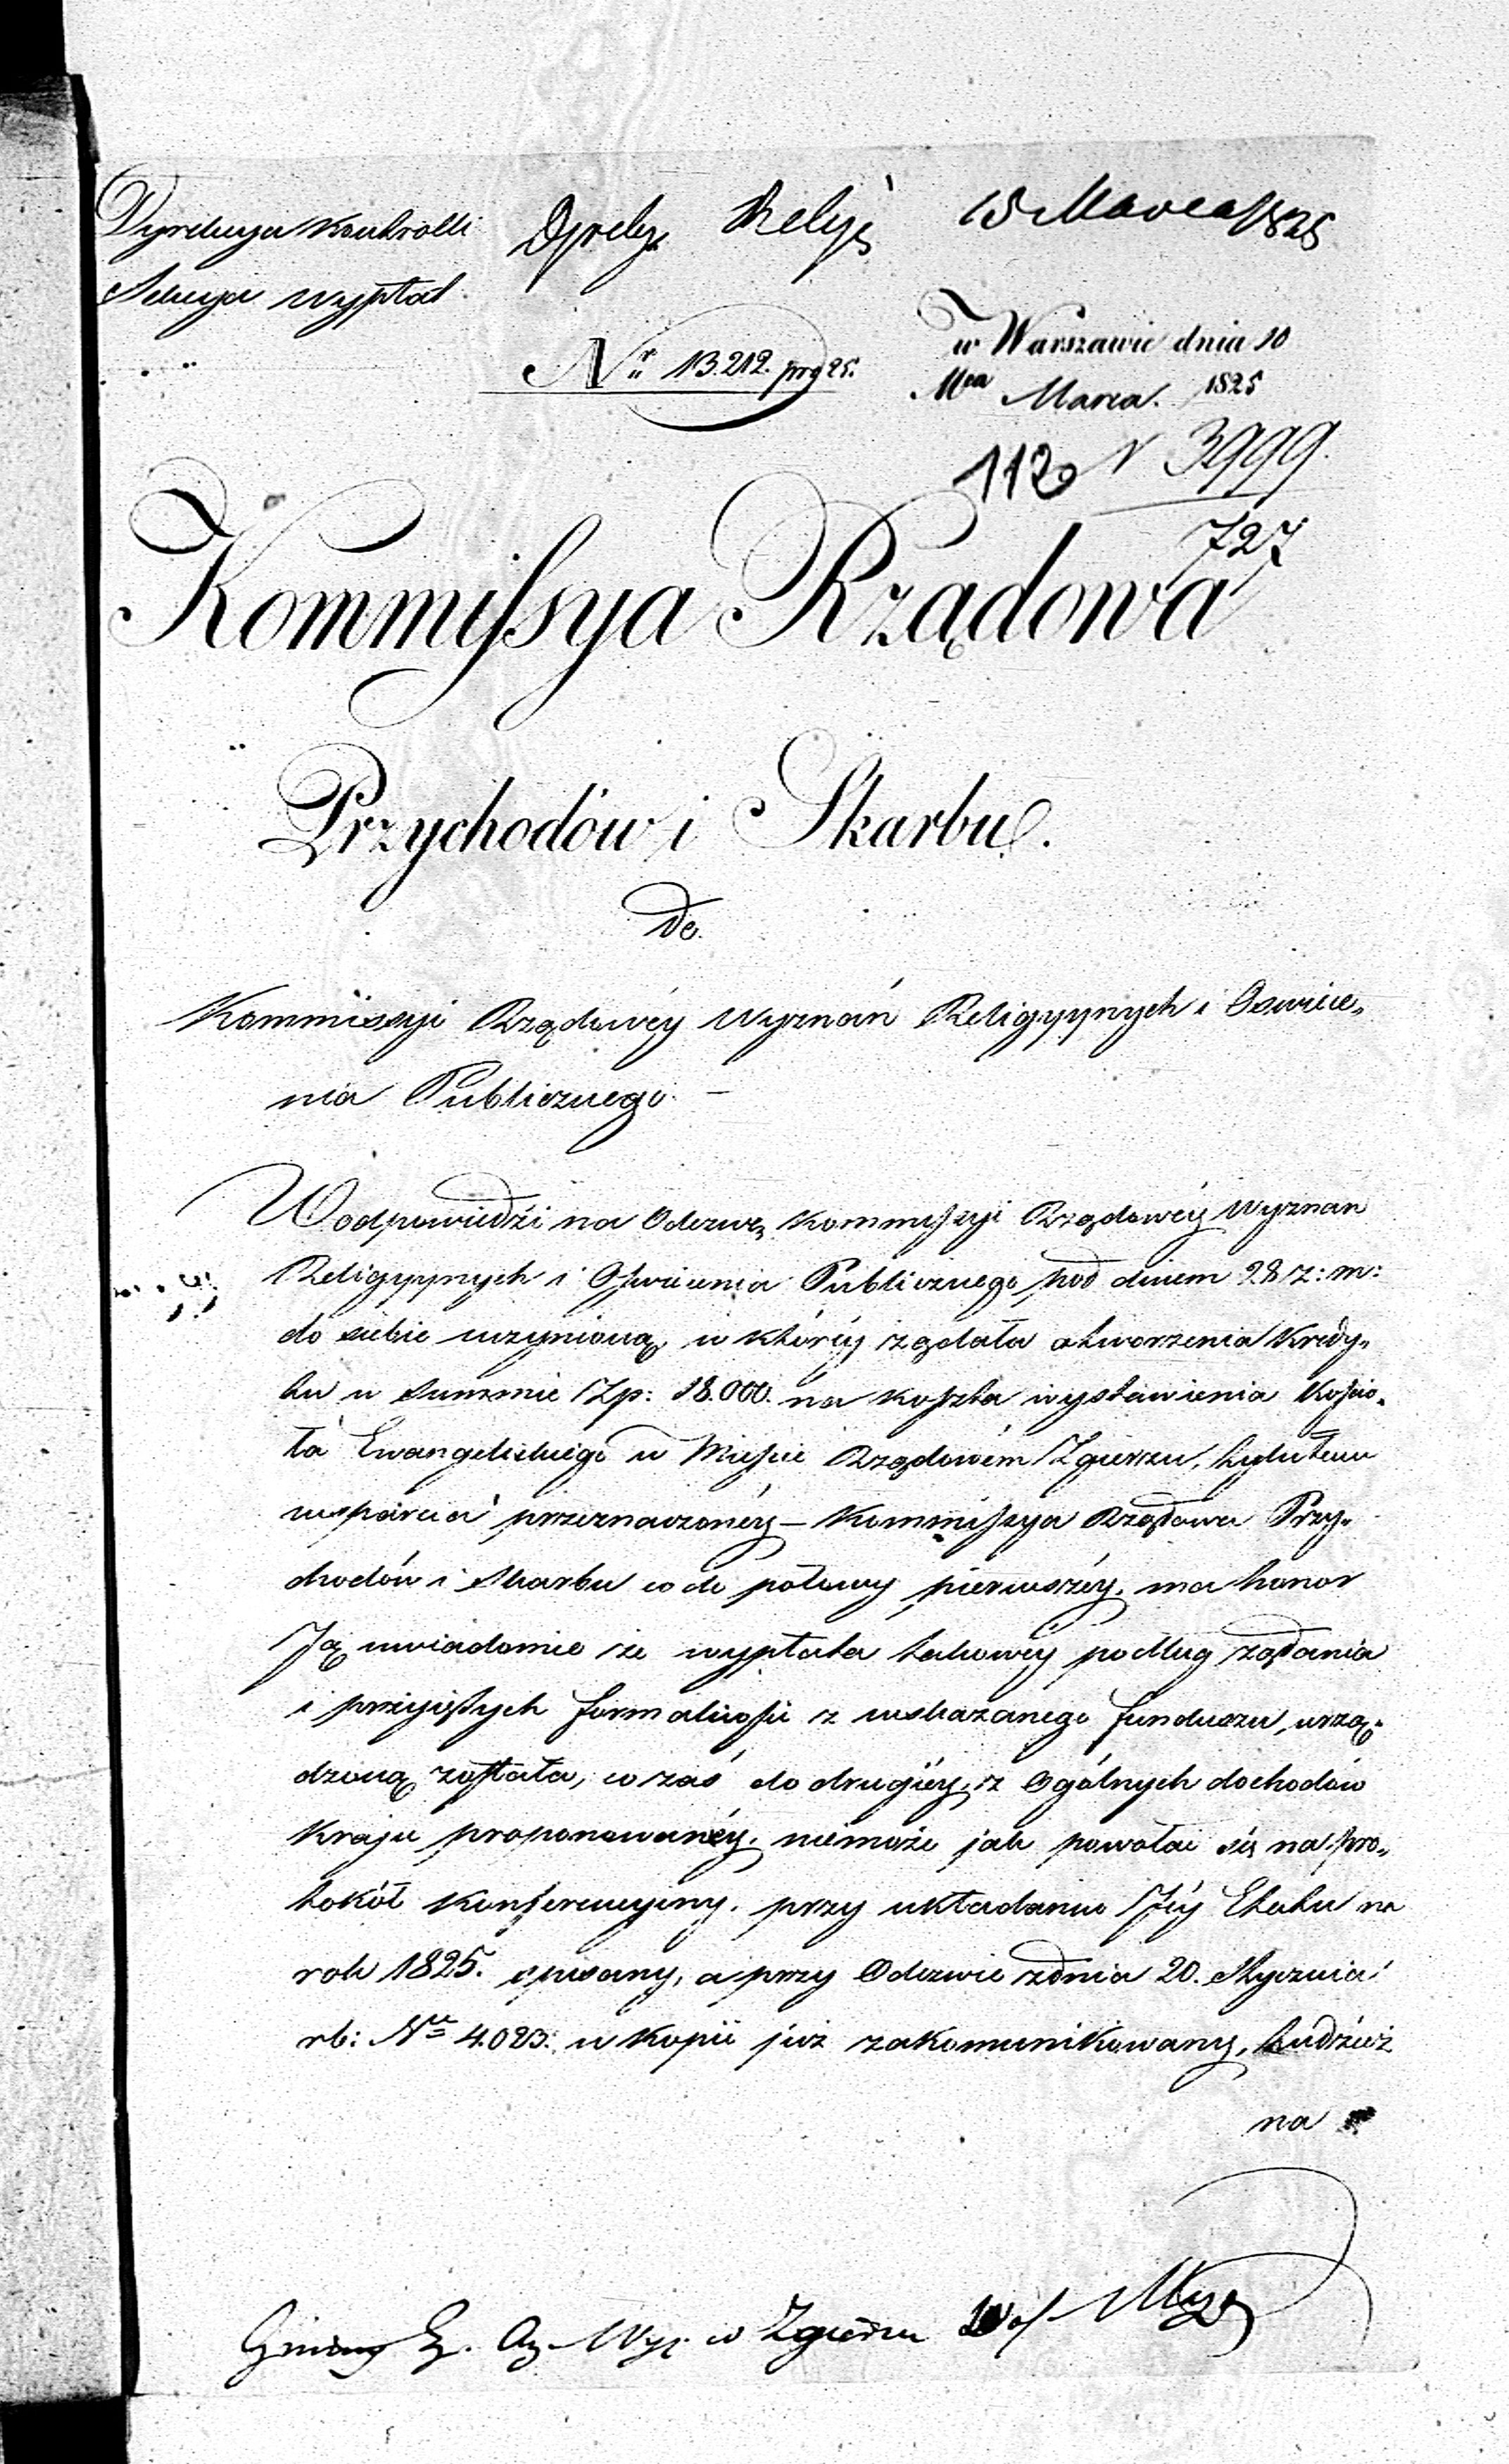 Dyrekcya Kontrolli
Sekcya wypłat
15 Marca 1825
Nr 13.212. prg 25.
w Warszawie dnia 10
Mca Marca. 1825
112 N 3999.
727
Kommissya Rządowa
Przychodów i Skarbu.
do.
Kommissyi Rządowéy Wyznań Religyynych i Oswiece„
nia Publicznego. —
W odpowiedźi na Odezwę Kommissyi Rządowéy Wyznan
Religyynych i Oswiecenia Publicznego pod dniem 28 z: m:
do siebie uczynioną, w któréy żądała otworzenia Kredy„
tu w Summie Zp: 18.000. na koszta wystawienia Kościo„
ła Ewangelickiego w Mieście Rządowém Zgierzu, tytułem
wsparcia przeznaczonéy — Kommissya Rządowa Przy„
chodów i Skarbu co do połowy pierwszéy, ma honor
Ją uwiadomić że wypłata takowéy podług żądania
i przyiętych formalności z wskazanego funduszu, urzą„
dzoną została, co zaś do drugiéy, z Ogólnych dochodów
Kraju proponowanéy, niemoże jak powołać się na pro„
tokół Konferencyiny, przy układaniu Jéy Etatu na
rok 1825. spisany, a przy Odezwie z dnia 20. Stycznia
rb: Nr 4.023: w Kopii już zakomunikowany, tudzież
na
w Zgierzu